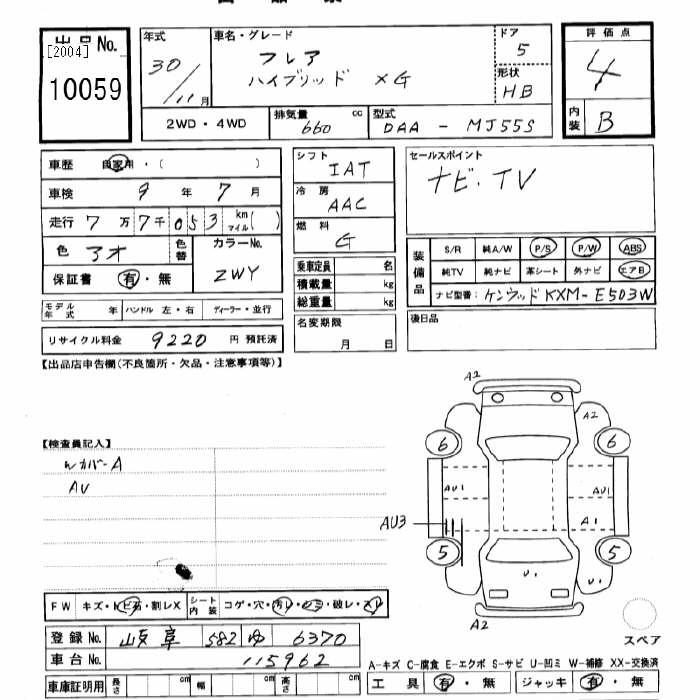 出品No. [2004] 10059
年式 30/11月
車名・グレード フレア ハイブリッド XG
ドア 5
形状 HB
評価点 4
内装 B
2WD・4WD
排気量 660 cc
型式 DAA - MJ55S
車歴 自家用・( )
車検 9年 7月
走行 7万 7千 0 5 3 km マイル( )
色 アオ
色替
カラーNo. ZWY
保証書 有・無
シフト IAT
冷房 AAC
燃料 G
乗車定員 名
積載量 kg
総重量 kg
セールスポイント
ナビ・TV
装備品
S/R 純A/W P/S P/W ABS
純TV 純ナビ 革シート 外ナビ エアB
ナビ型番: ケンウッド KXM-E503W
モデル年式 年 ハンドル 左・右 ディーラー・並行
リサイクル料金 9220 円 預託済
名変期限 月 日
後日品
【出品店申告欄(不良箇所・欠品・注意事項等)】
【検査員記入】
Wカバー A
AU
A2
A2
6 6
AU1 AU1
AU3 A1
5 5
U1
A2
スペア
FW キズ・トビ石・割レX シート内装 コゲ・穴・汚レ・シミ・破レ・スレ
登録No. 岐阜 582 ゆ 6370
車台No. 115962
車庫証明用 長さ cm 幅 cm 高さ cm
A-キズ C-腐食 E-エクボ S-サビ U-凹ミ W-補修 XX-交換済
工具 有・無 ジャッキ 有・無